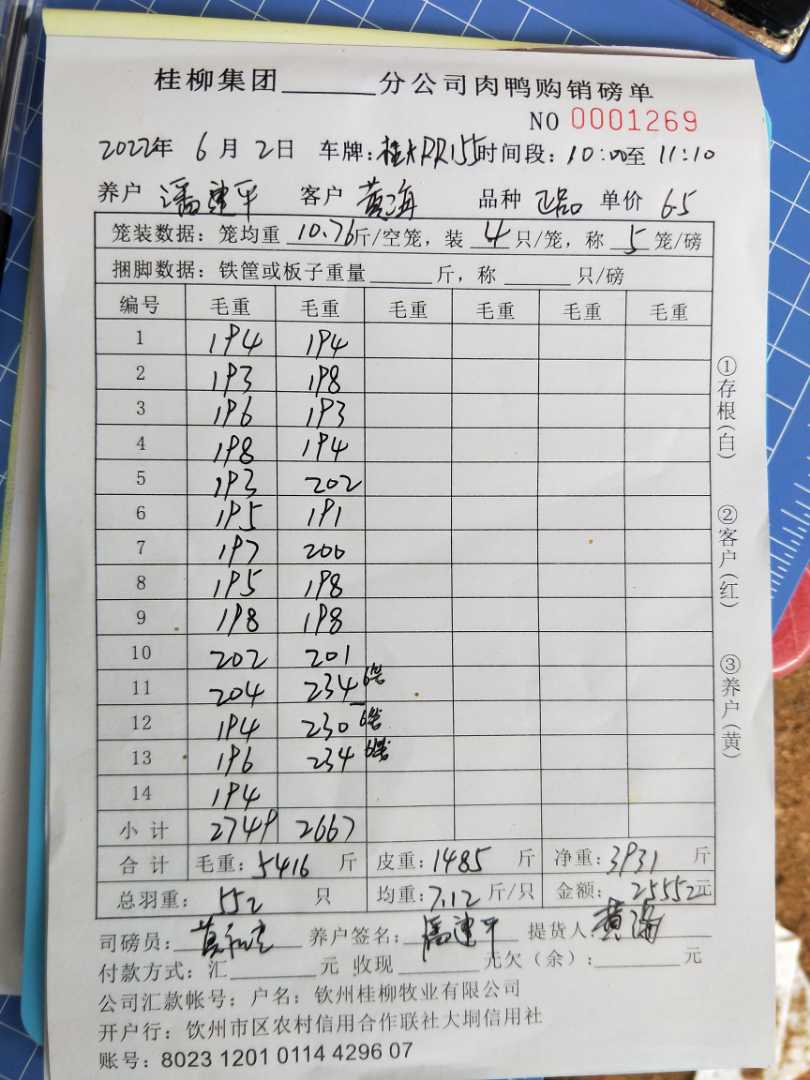 桂柳集团______分公司肉鸭购销磅单
NO 0001269
2022年 6月 2日 车牌:桂KRR155时间段:10:00至 11:10
养户 潘建平 客户 黄海 品种 正品 单价 6.5
笼装数据:笼均重 10.76斤/空笼,装 4 只/笼,称 5 笼/磅
捆脚数据:铁筐或板子重量______斤,称______只/磅
编号 毛重 毛重 毛重 毛重 毛重 毛重
1 194 194
2 193 198
3 196 193
4 198 194
5 193 202
6 195 191
7 197 200
8 195 198
9 198 198
10 202 201
11 204 234 6笼
12 194 230 6笼
13 196 234 6笼
14 194
小计 2749 2667
合计 毛重:5416 斤 皮重:1485 斤 净重:3931 斤
总羽重: 552 只 均重:7.12 斤/只 金额: 25552元
司磅员: 养户签名:潘建平 提货人:黄海
付款方式:汇______元 收现______元欠(余):______元
公司汇款帐号:户名:钦州桂柳牧业有限公司
开户行:钦州市区农村信用合作联社大垌信用社
账号:8023 1201 0114 4296 07
①存根(白)
②客户(红)
③养户(黄)